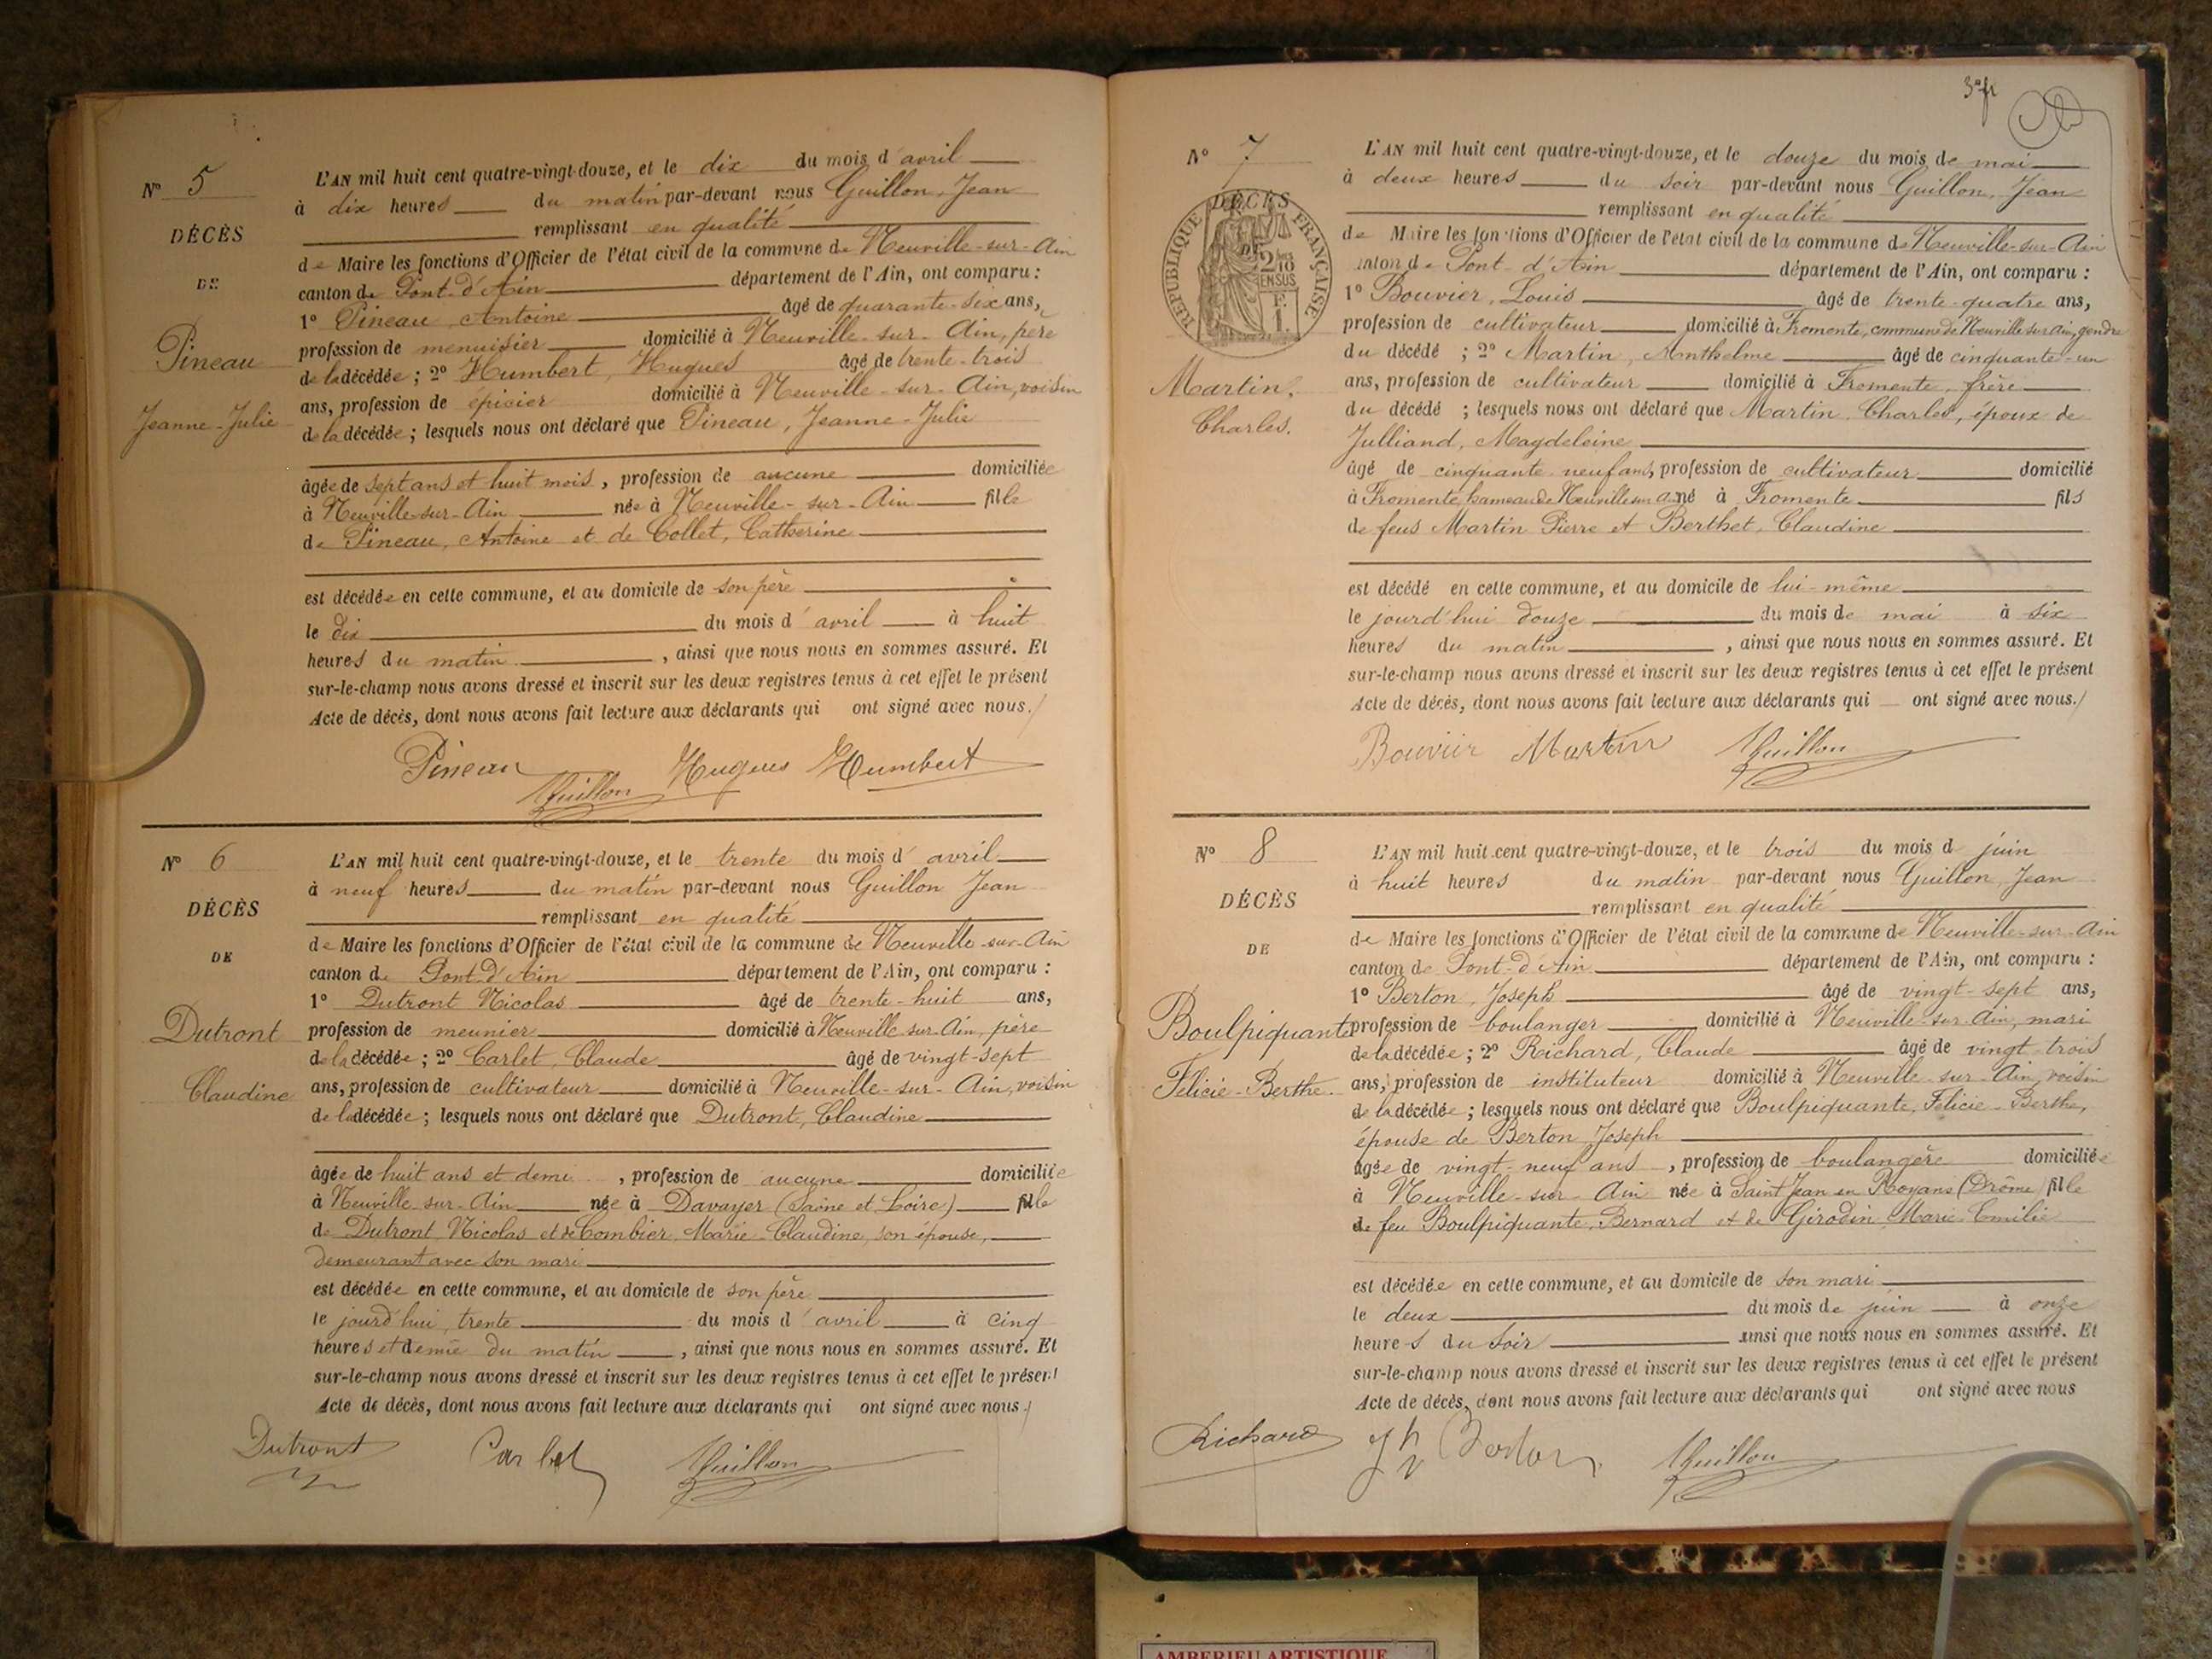 N° 5
DÉCÈS
DE
Pineau
Jeanne-Julie
L'AN mil huit cent quatre-vingt-douze, et le dix du mois d'avril
à dix heures du matin par-devant nous Guillon, Jean
remplissant en qualité
de Maire les fonctions d'Officier de l'état civil de la commune de Neuville-sur-Ain
canton de Pont-d'Ain département de l'Ain, ont comparu :
1° Pineau, Antoine âgé de quarante-six ans,
profession de menuisier domicilié à Neuville-sur-Ain, père
de la décédée ; 2° Humbert, Hugues âgé de trente-trois
ans, profession de épicier domicilié à Neuville-sur-Ain, voisin
de la décédée ; lesquels nous ont déclaré que Pineau, Jeanne-Julie
âgée de sept ans et huit mois, profession de aucune domiciliée
à Neuville-sur-Ain née à Neuville-sur-Ain fille
de Pineau, Antoine et de Collet, Catherine
est décédée en cette commune, et au domicile de son père
le dix du mois d'avril à huit
heures du matin, ainsi que nous nous en sommes assuré. Et
sur-le-champ nous avons dressé et inscrit sur les deux registres tenus à cet effet le présent
Acte de décès, dont nous avons fait lecture aux déclarants qui ont signé avec nous.
Pineau Hugues Humbert
JGuillon
N° 6
DÉCÈS
DE
Dutront
Claudine
L'AN mil huit cent quatre-vingt-douze, et le trente du mois d'avril
à neuf heures du matin par-devant nous Guillon Jean
remplissant en qualité
de Maire les fonctions d'Officier de l'état civil de la commune de Neuville-sur-Ain
canton de Pont-d'Ain département de l'Ain, ont comparu :
1° Dutront Nicolas âgé de trente-huit ans,
profession de meunier domicilié à Neuville-sur-Ain, père
de la décédée ; 2° Carlet, Claude âgé de vingt-sept
ans, profession de cultivateur domicilié à Neuville-sur-Ain, voisin
de la décédée ; lesquels nous ont déclaré que Dutront, Claudine
âgée de huit ans et demi, profession de aucune domiciliée
à Neuville-sur-Ain née à Davayer (Saône et Loire) fille
de Dutront Nicolas et de Combier, Marie-Claudine, son épouse,
demeurant avec son mari
est décédée en cette commune, et au domicile de son père
le jourd'hui, trente du mois d'avril à cinq
heures et demie du matin, ainsi que nous nous en sommes assuré. Et
sur-le-champ nous avons dressé et inscrit sur les deux registres tenus à cet effet le présent
Acte de décès, dont nous avons fait lecture aux déclarants qui ont signé avec nous.
Dutront Carlet JGuillon
N° 7
DÉCÈS
DE
RÉPUBLIQUE FRANÇAISE
2/10
EN SUS
F.
1.
Martin,
Charles.
L'AN mil huit cent quatre-vingt-douze, et le douze du mois de mai
à deux heures du soir par-devant nous Guillon, Jean
remplissant en qualité
de Maire les fonctions d'Officier de l'état civil de la commune de Neuville-sur-Ain
canton de Pont-d'Ain département de l'Ain, ont comparu :
1° Bouvier, Louis âgé de trente-quatre ans,
profession de cultivateur domicilié à Fromente, commune de Neuville sur Ain, gendre
du décédé ; 2° Martin, Anthelme âgé de cinquante-un
ans, profession de cultivateur domicilié à Fromente, frère
du décédé ; lesquels nous ont déclaré que Martin, Charles, époux de
Julliand, Magdeleine
âgé de cinquante neuf ans, profession de cultivateur domicilié
à Fromente, hameau de Neuville sur a. né à Fromente fils
de feus Martin Pierre et Berthet, Claudine
est décédé en cette commune, et au domicile de lui-même
le jourd'hui douze du mois de mai à six
heures du matin, ainsi que nous nous en sommes assuré. Et
sur-le-champ nous avons dressé et inscrit sur les deux registres tenus à cet effet le présent
Acte de décès, dont nous avons fait lecture aux déclarants qui ont signé avec nous.
Bouvier Martin JGuillon
N° 8
DÉCÈS
DE
Boulpiquante
Félicie-Berthe
L'AN mil huit cent quatre-vingt-douze, et le trois du mois d juin
à huit heures du matin par-devant nous Guillon, Jean
remplissant en qualité
de Maire les fonctions d'Officier de l'état civil de la commune de Neuville-sur-Ain
canton de Pont-d'Ain département de l'Ain, ont comparu :
1° Berton, Joseph âgé de vingt-sept ans,
profession de boulanger domicilié à Neuville-sur-Ain, mari
de la décédée ; 2° Richard, Claude âgé de vingt-trois
ans, profession de instituteur domicilié à Neuville-sur-Ain, voisin
de la décédée ; lesquels nous ont déclaré que Boulpiquante, Félicie-Berthe,
épouse de Berton Joseph
âgée de vingt-neuf ans, profession de boulangère domiciliée
à Neuville-sur-Ain née à Saint Jean en Royans (Drôme) fille
de feu Boulpiquante, Bernard et de Girodin, Marie Emilie
est décédée en cette commune, et au domicile de son mari
le deux du mois de juin à onze
heures du soir ainsi que nous nous en sommes assuré. Et
sur-le-champ nous avons dressé et inscrit sur les deux registres tenus à cet effet le présent
Acte de décès, dont nous avons fait lecture aux déclarants qui ont signé avec nous
Richard Jh Berton JGuillon
AMBERIEU ARTISTIQUE